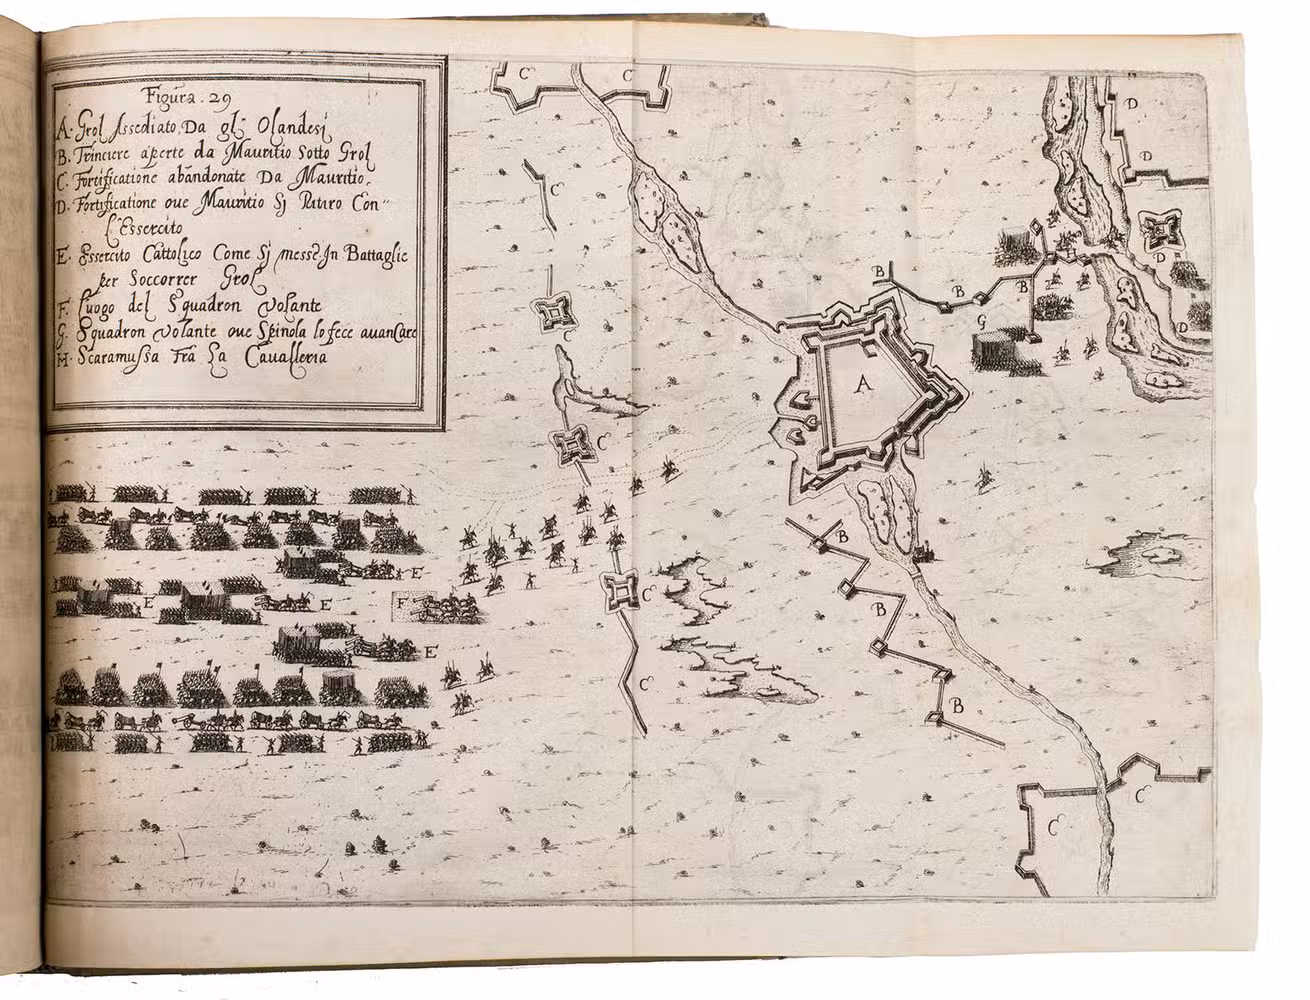 Figura . 29
A. Grol Assediato Da gl' Olandesi
B. Trinciere aperte da Mauritio Sotto Grol
C. Fortificatione abandonate Da Mauritio.
D. Fortificatione oue Mauritio Sj Ritiro Con
L'Essercito
E. Essercito Cattolico Come Sj messe In Battaglie
per Soccorrer Grol
F. Luogo del Squadron Volante
G. Squadron Volante oue Spinola lo fece auanSare
H. Scaramussa Fra La Caualleria
C C
D
D
C
D
B H
B B
C
G
D
C
A
C
B
E
C
B
E E F
E
C
B
C
C